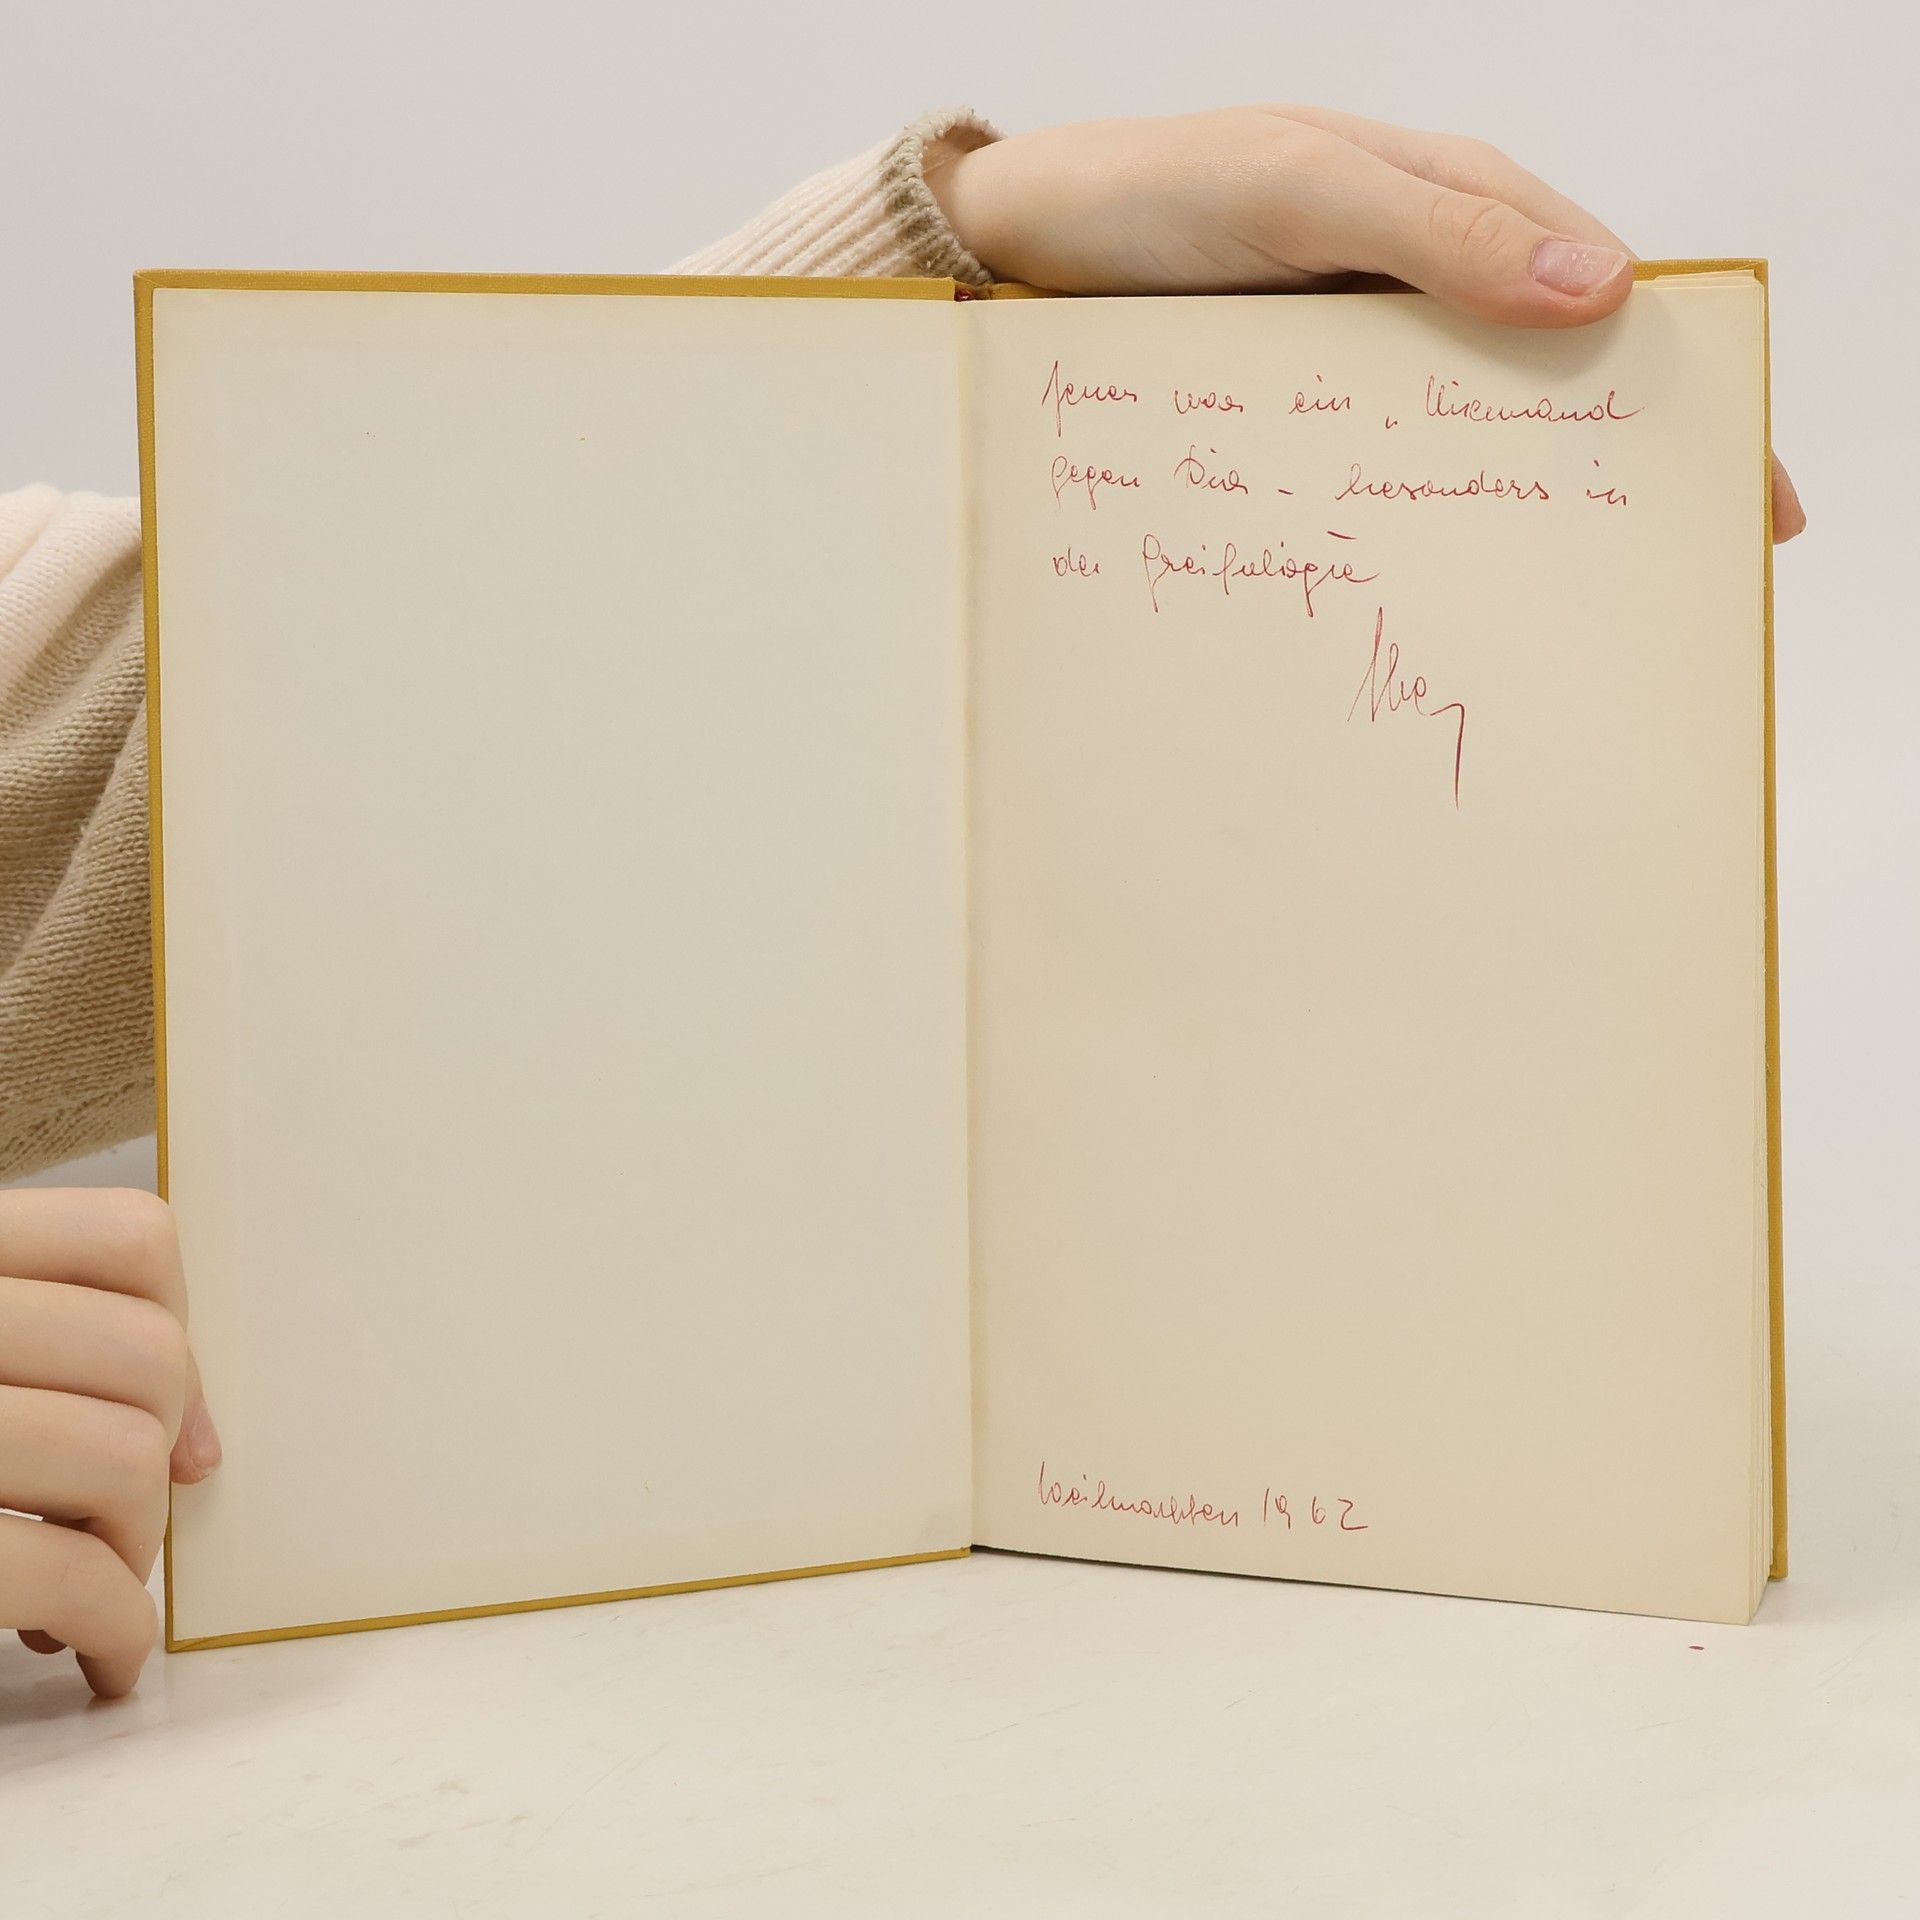 Jener war ein „Niemand
gegen Dich – besonders in
der
Weihnachten 1962